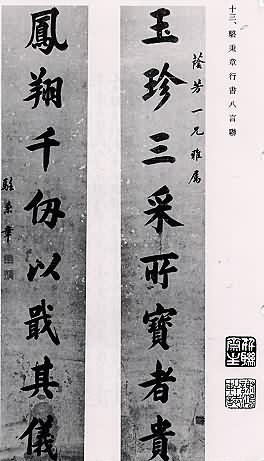 十三、駱秉章行書八言聯
蔭芳一兄雅屬
玉珍三采所寶者貴
鳳翔千仞以戢其儀
駱秉章